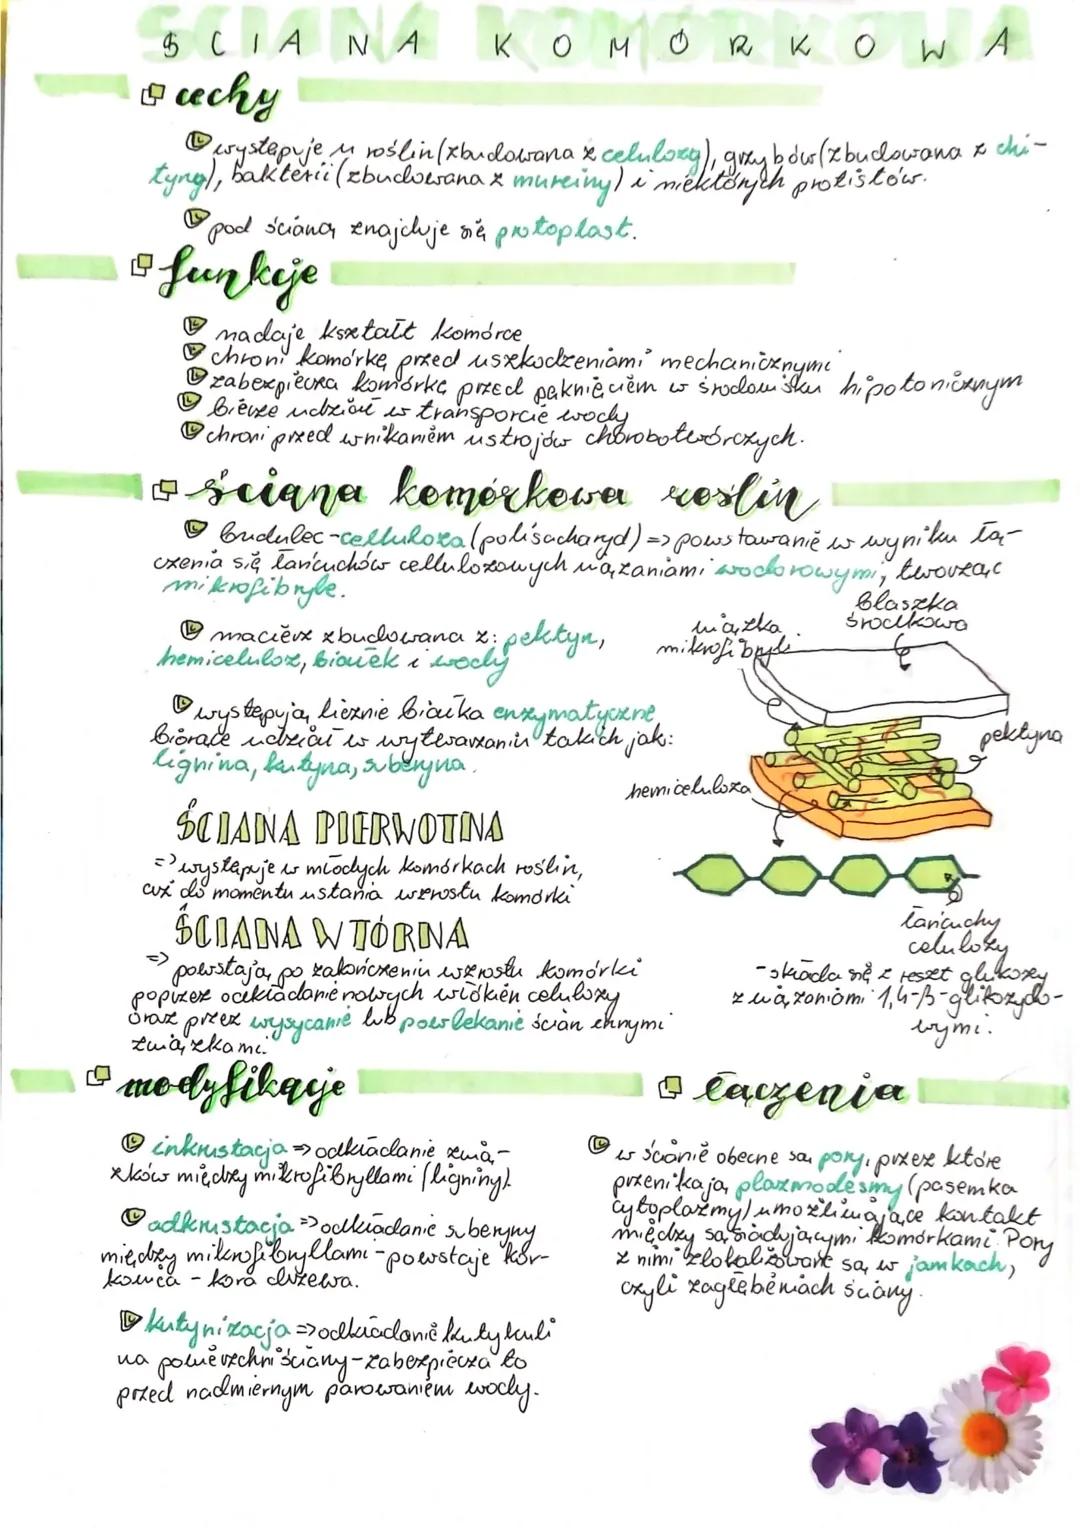 ŚCIANA KOMÓRKOWA
cechy
występuje u roślin (zbudowana z celulozy), grzybów (zbudowana z chi-
tyny), bakterii (zbudowana z mureiny) i niektórych protistów.
pod ścianą znajduje się protoplast.
funkcje
nadaje kształt komórce
chroni komórkę przed uszkodzeniami mechanicznymi
zabezpiecza komórkę przed pęknięciem w środowisku hipotonicznym
bierze udział w transporcie wody
chroni przed wnikaniem ustrojów chorobotwórczych.
ściana komórkowa roślin
budulec - celluloza (polisacharyd) => powstawanie w wyniku łą-
czenia się łańcuchów cellulozowych wiązaniami wodorowymi, tworząc
mikrofibryle.
macierz zbudowana z: pektyn,
hemiceluloz, białek i wody
występują licznie białka enzymatyczne
biorące udział w wytwarzaniu takich jak:
lignina, kutyna, suberyna.
wiązka
mikrofibryli
blaszka
środkowa
pektyna
hemiceluloza
łańcuchy
celulozy
- składa się z reszt glukozy
z wiązaniami 1,4-β-glikozydo-
wymi.
ŚCIANA PIERWOTNA
=> występuje w młodych komórkach roślin,
aż do momentu ustania wzrostu komórki
ŚCIANA WTÓRNA
=> powstają po zakończeniu wzrostu komórki
poprzez odkładanie nowych włókien celulozy
oraz przez wysycanie lub powlekanie ścian innymi
związkami.
modyfikacje
inkrustacja => odkładanie zwią-
zków między mikrofibryllami (ligniny).
adkrustacja => odkładanie suberyny
między mikrofibryllami - powstaje kor-
kowica - kora drzewa.
kutynizacja => odkładanie kutykuli
na powierzchni ściany - zabezpiecza to
przed nadmiernym parowaniem wody.
łączenia
w ścianie obecne są pory, przez które
przenikają plazmodesmy (pasemka
cytoplazmy) umożliwiające kontakt
między sąsiadującymi komórkami. Pory
z nimi zlokalizowane są w jamkach,
czyli zagłębieniach ściany.